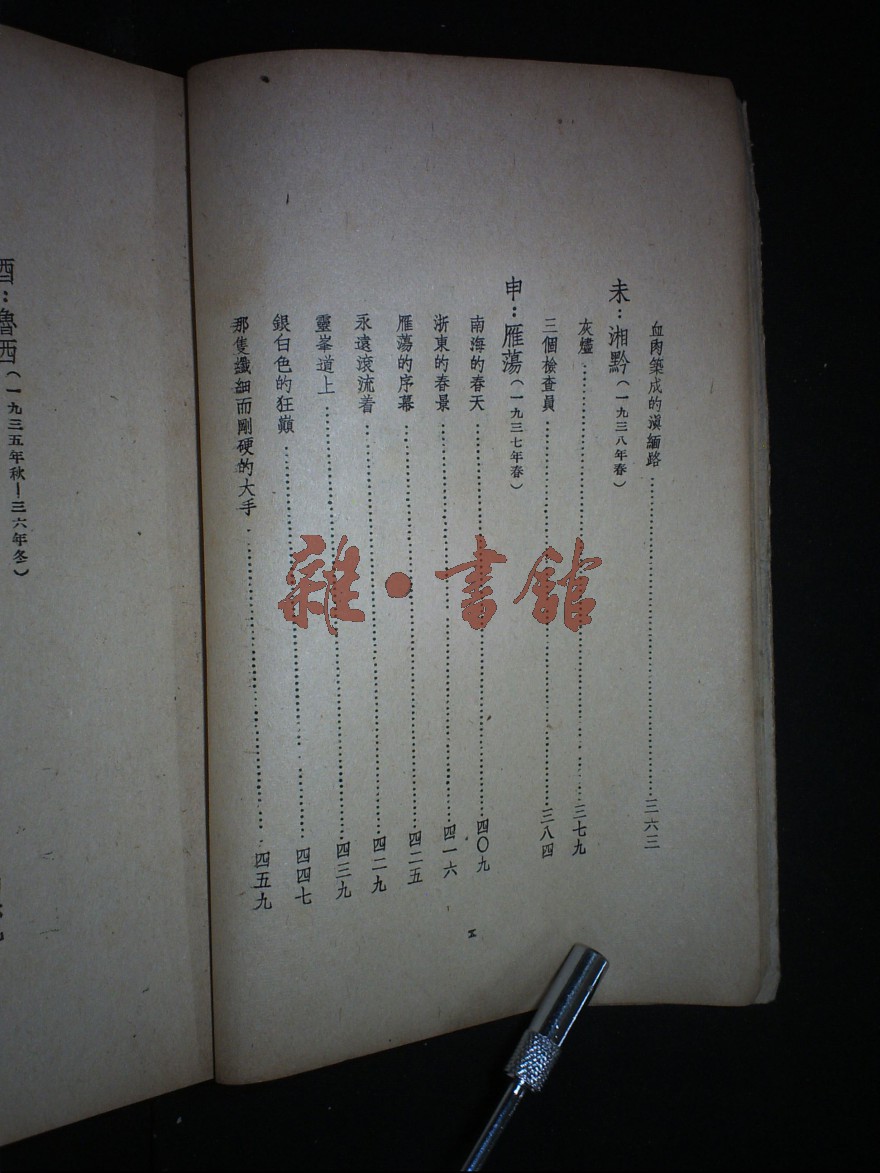 血肉築成的滇緬路……三六三
未：湘黔（一九三八年春）
灰燼……三七九
三個檢查員……三八四
申：雁蕩（一九三七年春）
南海的春天……四〇九
浙東的春景……四一六
雁蕩的序幕……四二五
永遠滾流着……四二九
靈峯道上……四三九
銀白色的狂巔……四四七
那隻纖細而剛硬的大手……四五九
酉：魯西（一九三五年秋—三六年冬）
雜·書館